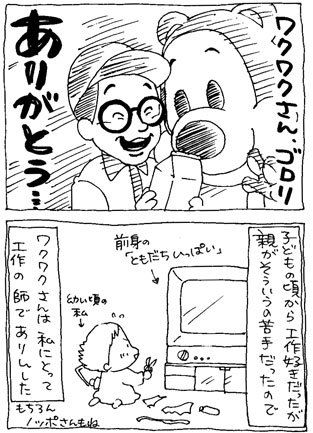 ワクワクさん、ゴロリ
ありがとう…
子どもの頃から工作好きだったが
親がそういうの苦手だったので
前身の
「ともだちいっぱい」
幼い頃の
私
ワクワクさんは私にとって
工作の師でありんした
もちろん
ノッポさんもね